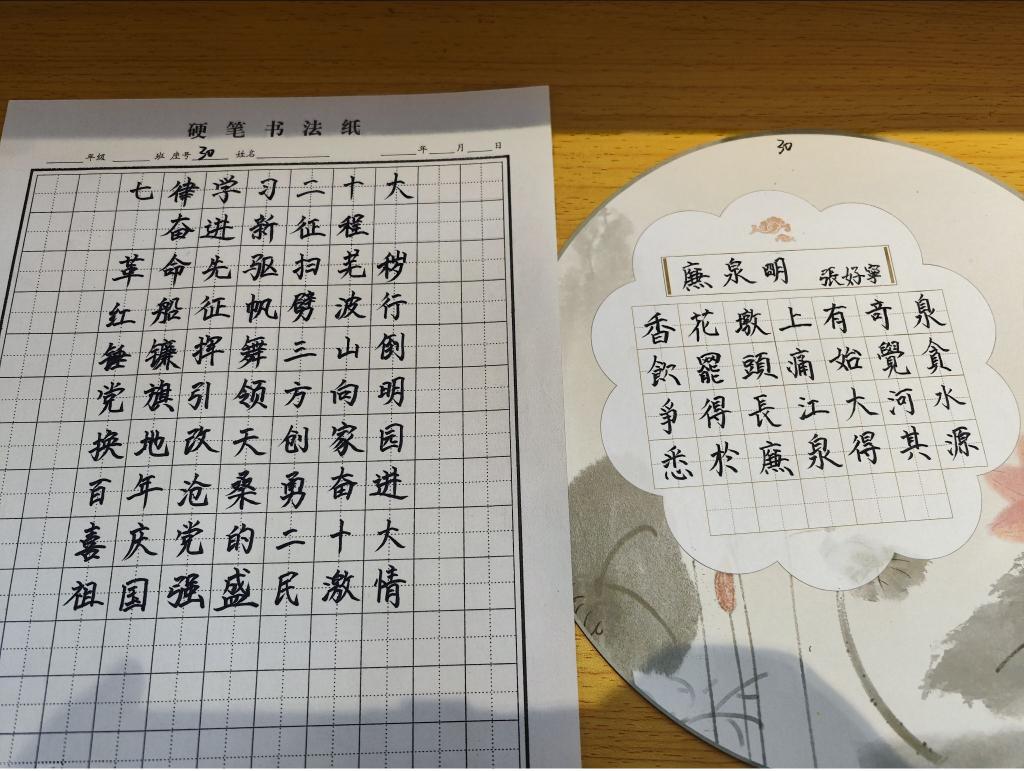 硬笔书法纸
年级 班 座号 30 姓名 年 月 日
七律学习二十大
奋进新征程
革命先驱扫芜秽
红船征帆劈波行
锤镰挥舞三山倒
党旗引领方向明
换地改天创家园
百年沧桑勇奋进
喜庆党的二十大
祖国强盛民激情
30
廉泉明 張好寧
香花墩上有奇泉
飲罷頭痛始覺貪
爭得長江大河水
悉於廉泉得其源